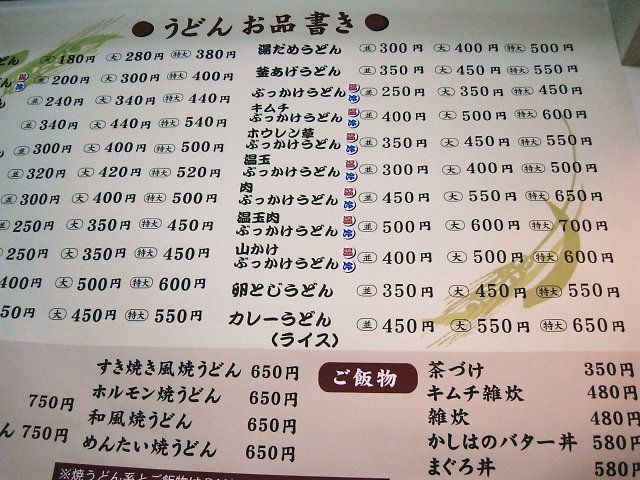 ●うどん お品書き●
どん 並 180円 大 280円 特大 380円
どん 温 冷 並 200円 大 300円 特大 400円
ん 並 240円 大 340円 特大 440円
並 340円 大 440円 特大 540円
並 300円 大 400円 特大 500円
並 320円 大 420円 特大 520円
並 300円 大 400円 特大 500円
並 250円 大 350円 特大 450円
250円 大 350円 特大 450円
400円 大 500円 特大 600円
50円 大 450円 特大 550円
湯だめうどん 並 300円 大 400円 特大 500円
釜あげうどん 並 350円 大 450円 特大 550円
ぶっかけうどん 温 冷 並 250円 大 350円 特大 450円
キムチ
ぶっかけうどん 温 冷 並 400円 大 500円 特大 600円
ホウレン草
ぶっかけうどん 温 冷 並 350円 大 450円 特大 550円
温玉
ぶっかけうどん 温 冷 並 300円 大 400円 特大 500円
肉
ぶっかけうどん 温 冷 並 450円 大 550円 特大 650円
温玉肉
ぶっかけうどん 温 冷 並 500円 大 600円 特大 700円
山かけ
ぶっかけうどん 温 冷 並 400円 大 500円 特大 600円
卵とじうどん 並 350円 大 450円 特大 550円
カレーうどん 並 450円 大 550円 特大 650円
(ライス)
750円
ん 750円
すき焼き風焼うどん 650円
ホルモン焼うどん 650円
和風焼うどん 650円
めんたい焼うどん 650円
ご飯物
茶づけ 350円
キムチ雑炊 480円
雑炊 480円
かしはのバター丼 580円
まぐろ丼 580円
※焼うどん系とご飯物は